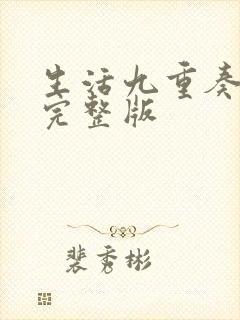 生活九重奏
完整版
裴秀彬